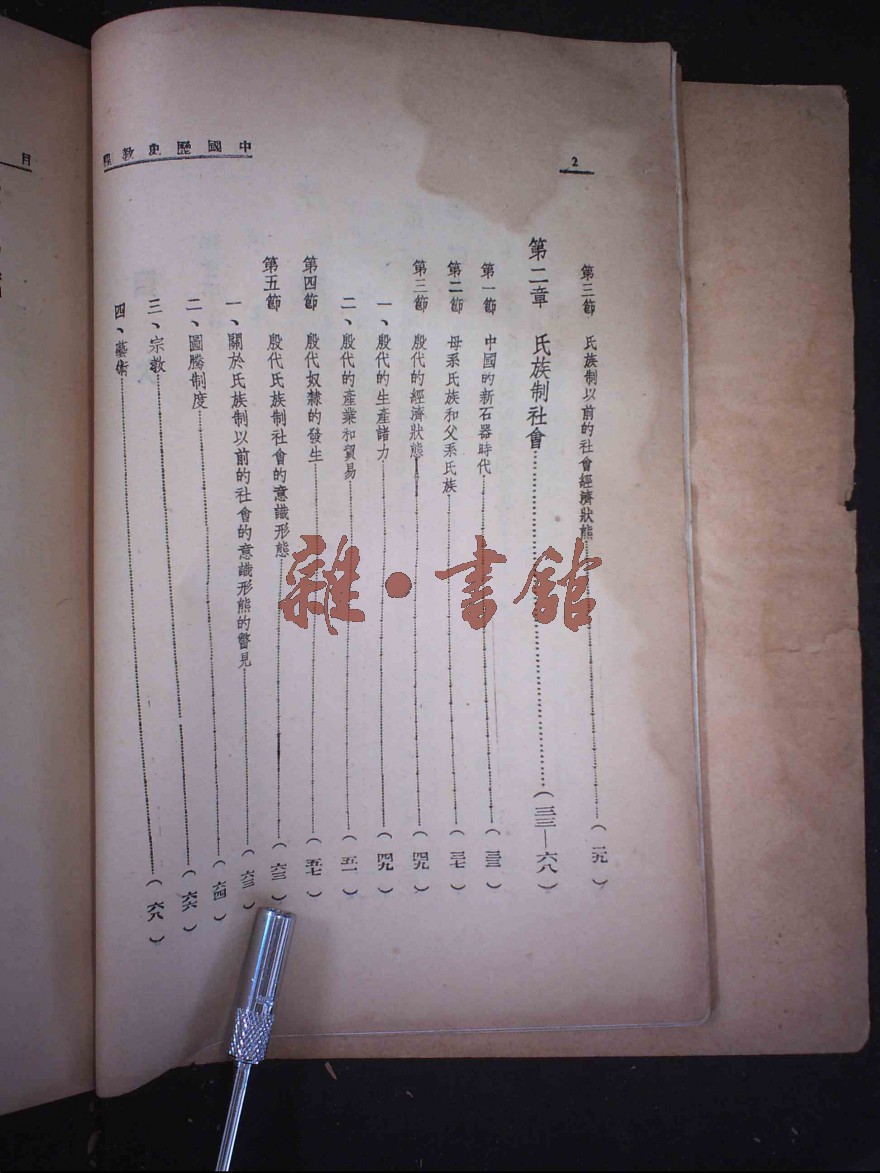 中國歷史教程
2
第三節 氏族制以前的社會經濟狀態…………(二九)
第二章 氏族制社會…………(三三—六八)
第一節 中國的新石器時代…………(三三)
第二節 母系氏族和父系氏族…………(三七)
第三節 殷代的經濟狀態…………(四九)
一、殷代的生產諸力…………(四九)
二、殷代的產業和貿易…………(五一)
第四節 殷代奴隸的發生…………(五七)
第五節 殷代氏族制社會的意識形態…………(六三)
一、關於氏族制以前的社會的意識形態的瞥見…………(六三)
二、圖騰制度…………(六四)
三、宗教…………(六六)
四、藝術…………(六八)
目
雜·書館